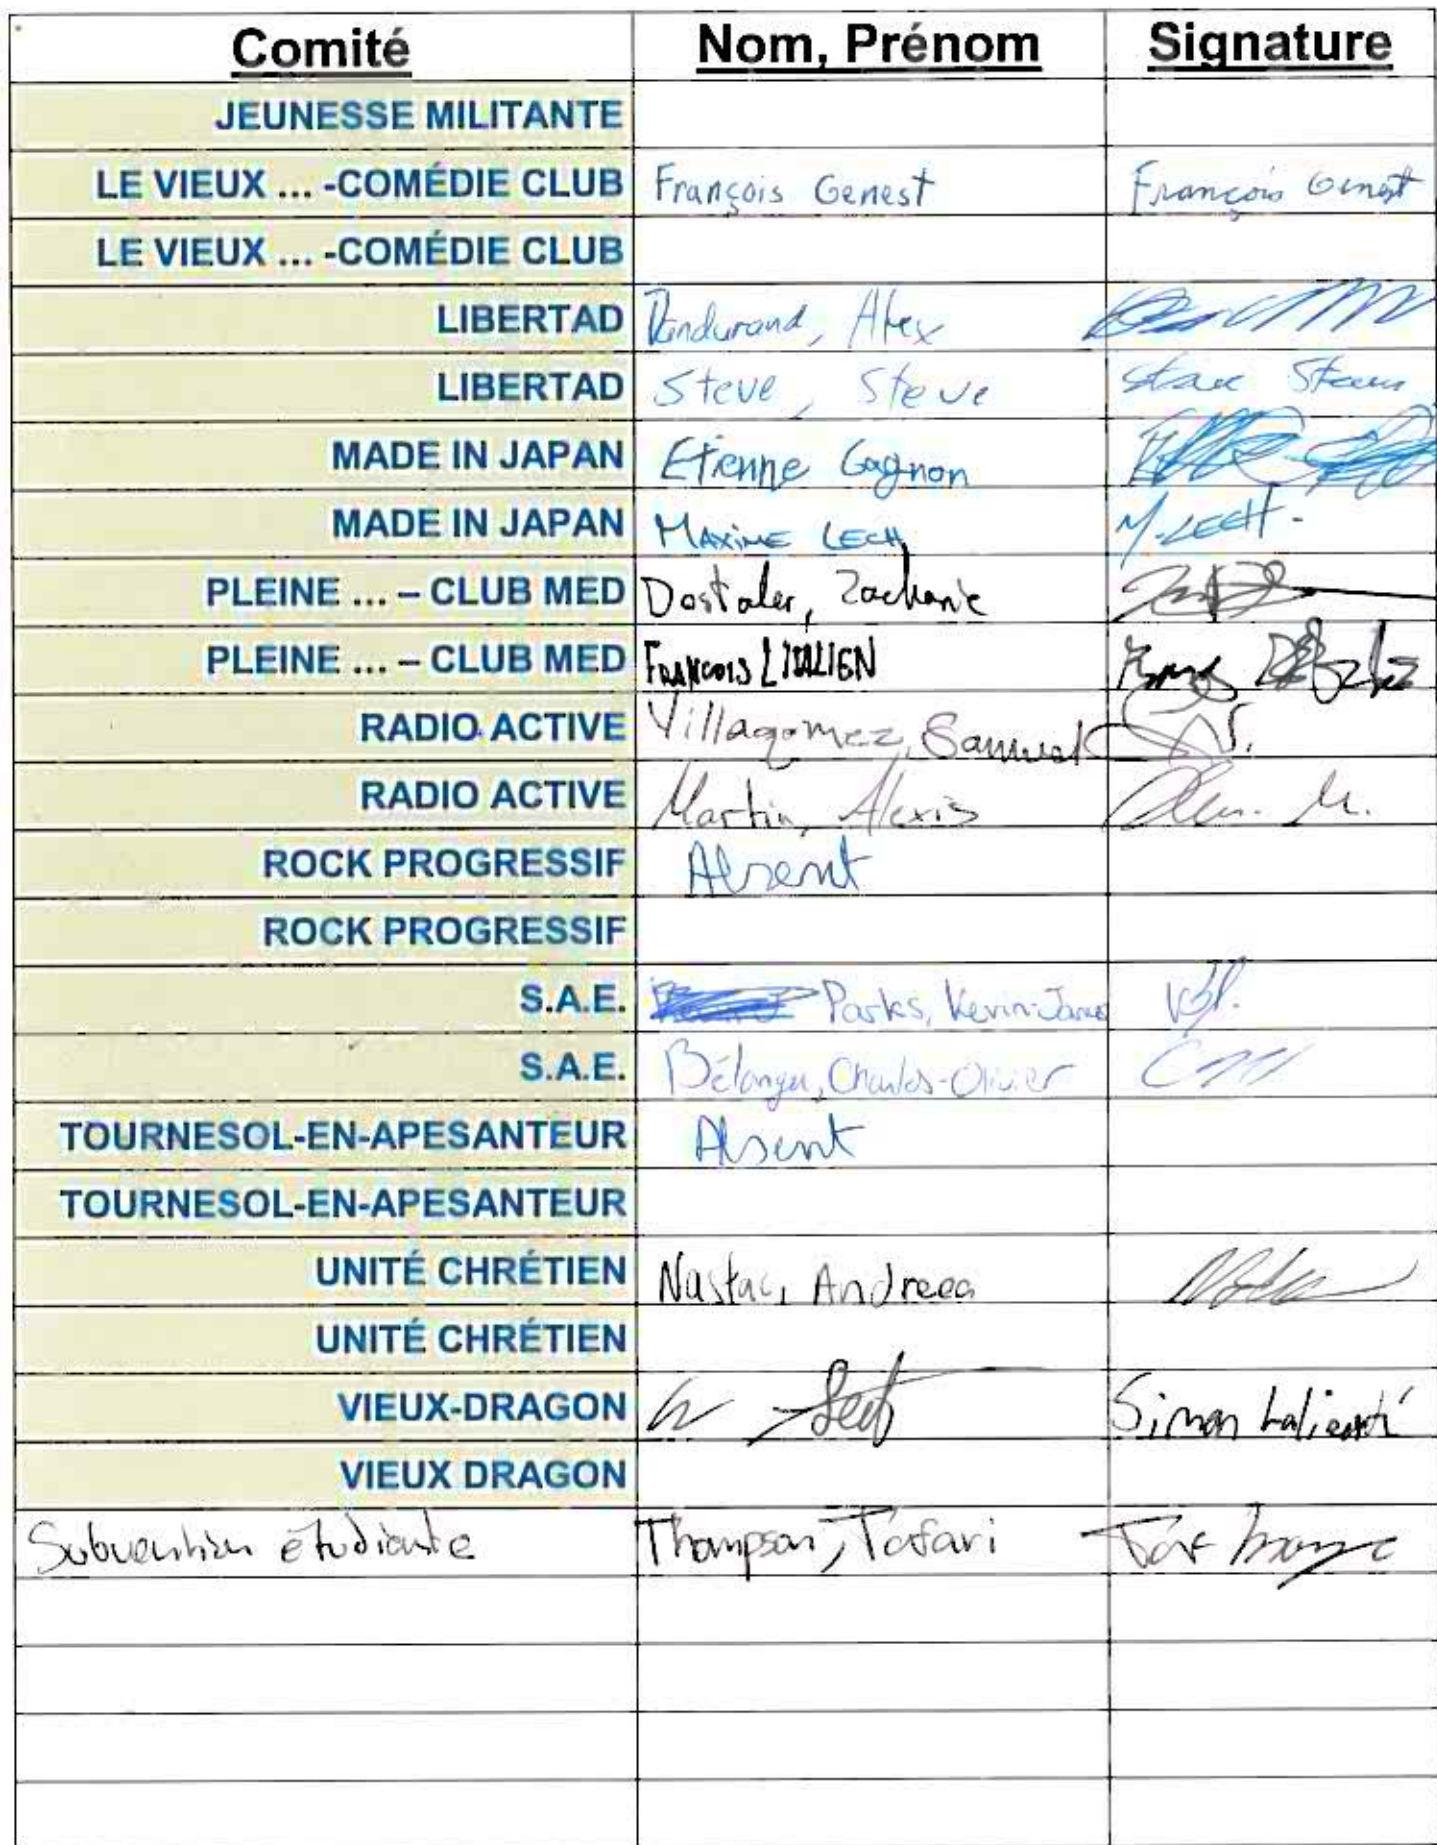 Comité Nom, Prénom Signature
JEUNESSE MILITANTE
LE VIEUX ... -COMÉDIE CLUB François Genest François Genest
LE VIEUX ... -COMÉDIE CLUB
LIBERTAD Dandurand, Alex
LIBERTAD Steve, Steve
MADE IN JAPAN Etienne Gagnon
MADE IN JAPAN MAXIME LECH M. LECH.
PLEINE ... – CLUB MED Dostaler, Zacharie
PLEINE ... – CLUB MED FRANCOIS L'ITALIEN
RADIO ACTIVE Villagomez, Samuel
RADIO ACTIVE Martin, Alexis
ROCK PROGRESSIF Absent
ROCK PROGRESSIF
S.A.E. Parks, Kevin-James
S.A.E. Bélanger, Charles-Olivier
TOURNESOL-EN-APESANTEUR Absent
TOURNESOL-EN-APESANTEUR
UNITÉ CHRÉTIEN Nastac, Andreea
UNITÉ CHRÉTIEN
VIEUX-DRAGON Simon
VIEUX DRAGON
Subvention étudiante Thompson, Tafari